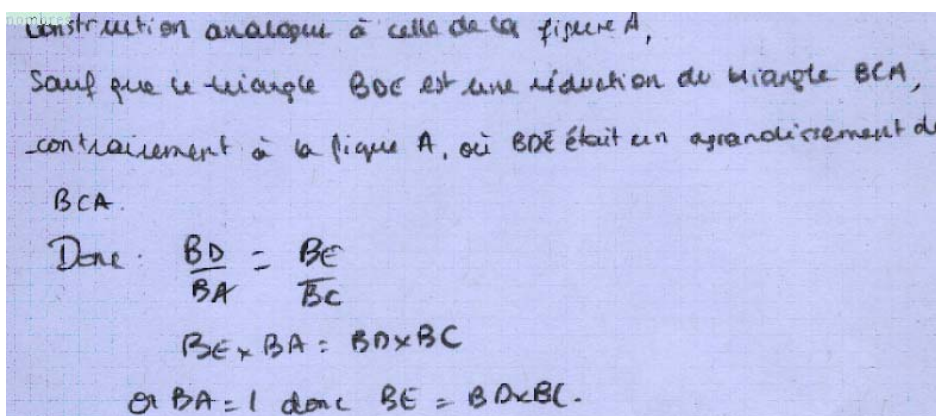 nombres
construction analogue à celle de la figure A,
Sauf que le triangle BDE est une réduction du triangle BCA,
contrairement à la figure A, où BDE était un agrandissement de
BCA.
Donc : BD/BA = BE/BC
BE x BA = BD x BC
or BA = 1 donc BE = BD x BC.